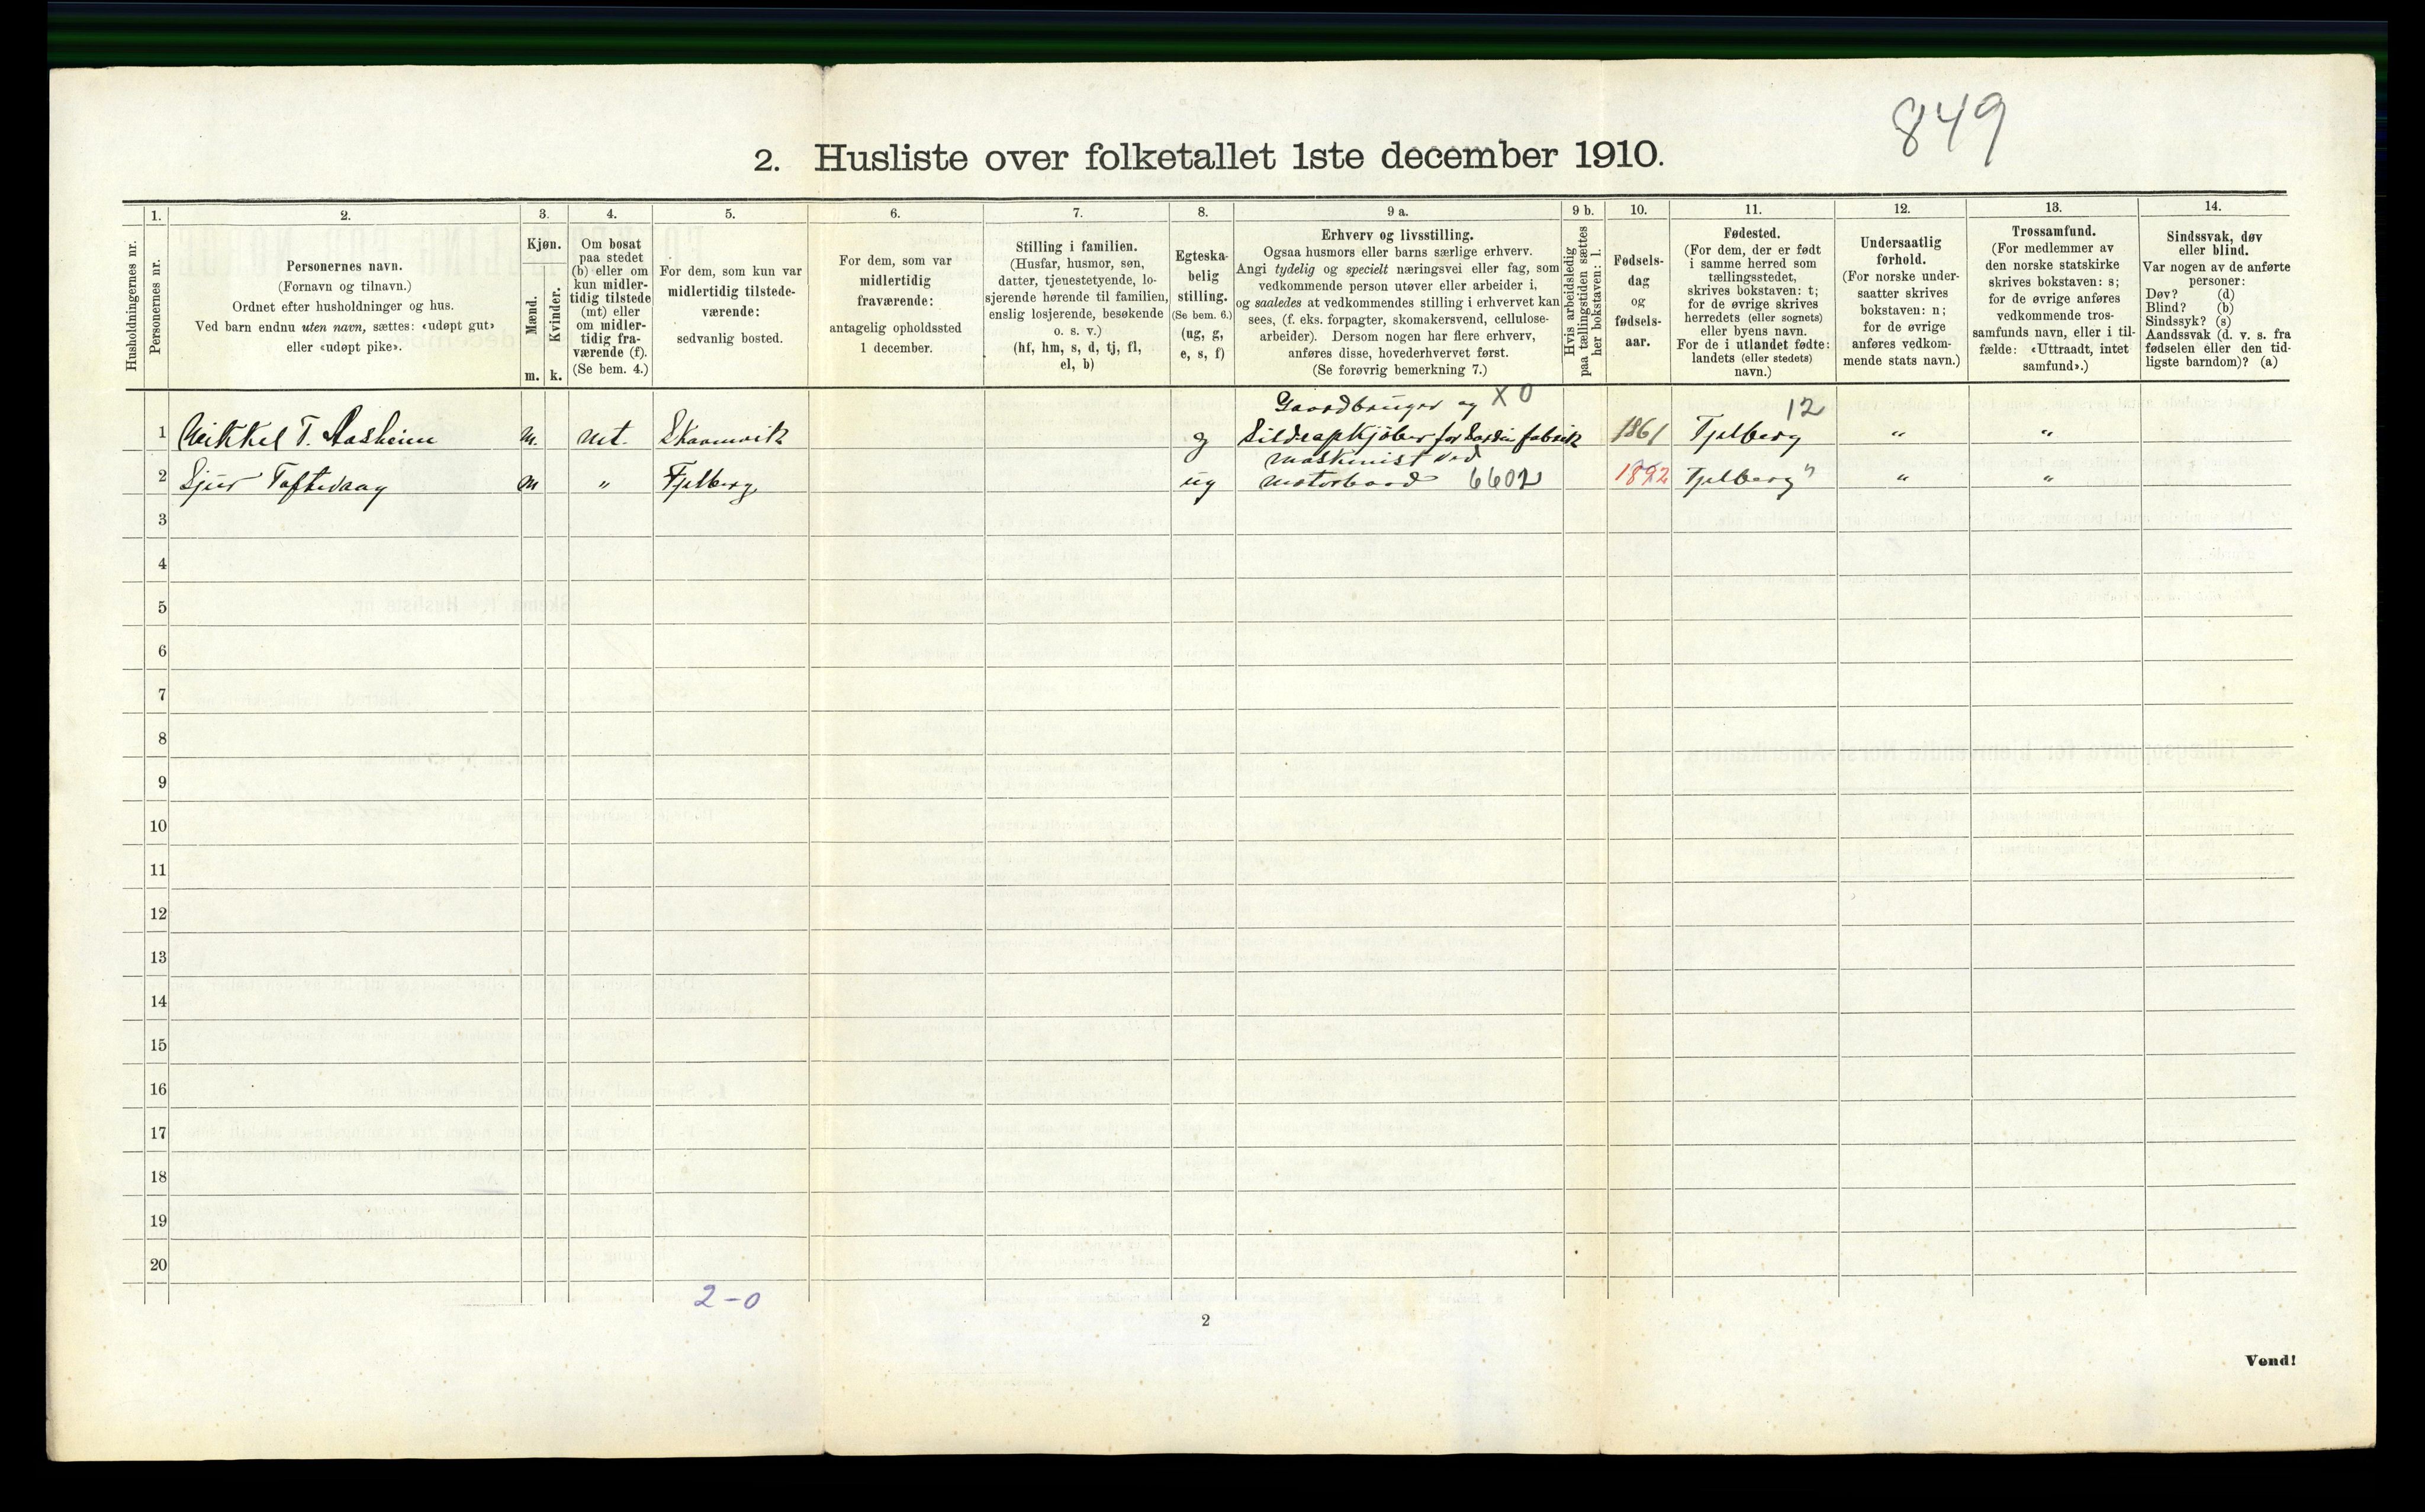 849
2. Husliste over folketallet 1ste december 1910.
Husholdningernes nr.
1.
Personernes nr.
2.
Personernes navn.
(Fornavn og tilnavn.)
Ordnet efter husholdninger og hus.
Ved barn endnu uten navn, sættes: «udøpt gut»
eller «udøpt pike».
3.
Kjøn.
Mænd.
Kvinder.
m. k.
4.
Om bosat
paa stedet
(b) eller om
kun midler-
tidig tilstede
(mt) eller
om midler-
tidig fra-
værende (f).
(Se bem. 4.)
5.
For dem, som kun var
midlertidig tilstede-
værende:
sedvanlig bosted.
6.
For dem, som var
midlertidig
fraværende:
antagelig opholdssted
1 december.
7.
Stilling i familien.
(Husfar, husmor, søn,
datter, tjenestetyende, lo-
sjerende hørende til familien,
enslig losjerende, besøkende
o. s. v.)
(hf, hm, s, d, tj, fl,
el, b)
8.
Egteska-
belig
stilling.
(Se bem. 6.)
(ug, g,
e, s, f)
9 a.
Erhverv og livsstilling.
Ogsaa husmors eller barns særlige erhverv.
Angi tydelig og specielt næringsvei eller fag, som
vedkommende person utøver eller arbeider i,
og saaledes at vedkommendes stilling i erhvervet kan
sees, (f. eks. forpagter, skomakersvend, cellulose-
arbeider). Dersom nogen har flere erhverv,
anføres disse, hovederhvervet først.
(Se forøvrig bemerkning 7.)
9 b.
Hvis arbeidsledig
paa tællingstiden sættes
her bokstaven: l.
10.
Fødsels-
dag
og
fødsels-
aar.
11.
Fødested.
(For dem, der er født
i samme herred som
tællingsstedet,
skrives bokstaven: t;
for de øvrige skrives
herredets (eller sognets)
eller byens navn.
For de i utlandet fødte:
landets (eller stedets)
navn.)
12.
Undersaatlig
forhold.
(For norske under-
saatter skrives
bokstaven: n;
for de øvrige
anføres vedkom-
mende stats navn.)
13.
Trossamfund.
(For medlemmer av
den norske statskirke
skrives bokstaven: s;
for de øvrige anføres
vedkommende tros-
samfunds navn, eller i til-
fælde: «Uttraadt, intet
samfund».)
14.
Sindssvak, døv
eller blind.
Var nogen av de anførte
personer:
Døv? (d)
Blind? (b)
Sindssyk? (s)
Aandssvak (d. v. s. fra
fødselen eller den tid-
ligste barndom)? (a)
Gaardbruger og X 0 12
1 Mikkel T. Aasheim m. mt. g Sildeopkjøber for Sardin fabrik 1861 Fjelberg " "
maskinist ved
2 Sjur Toftevaag m " Fjelberg ug motorbaad 6602 1892 Fjelberg " " "
3
4
5
6
7
8
9
10
11
12
13
14
15
16
17
18
19
20
2-0
2
Vend!